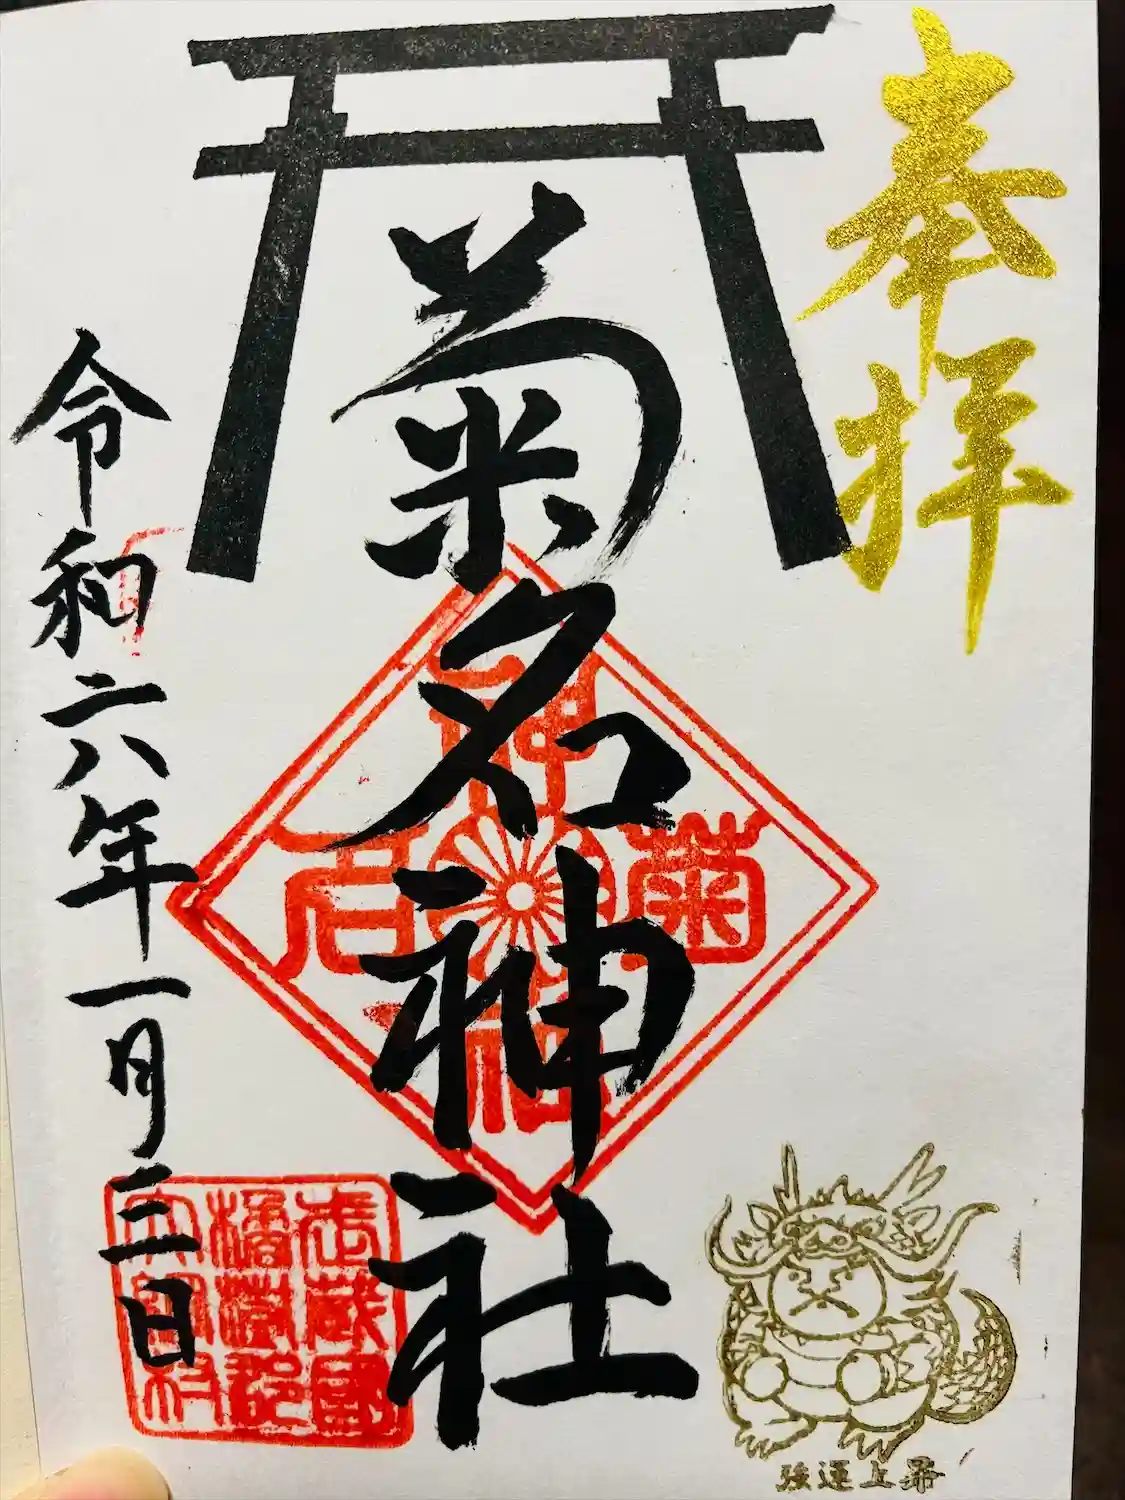 奉拝
菊名神社
菊
神
社
名
令和六年一月三日
武蔵國
橘樹郡
強運上昇